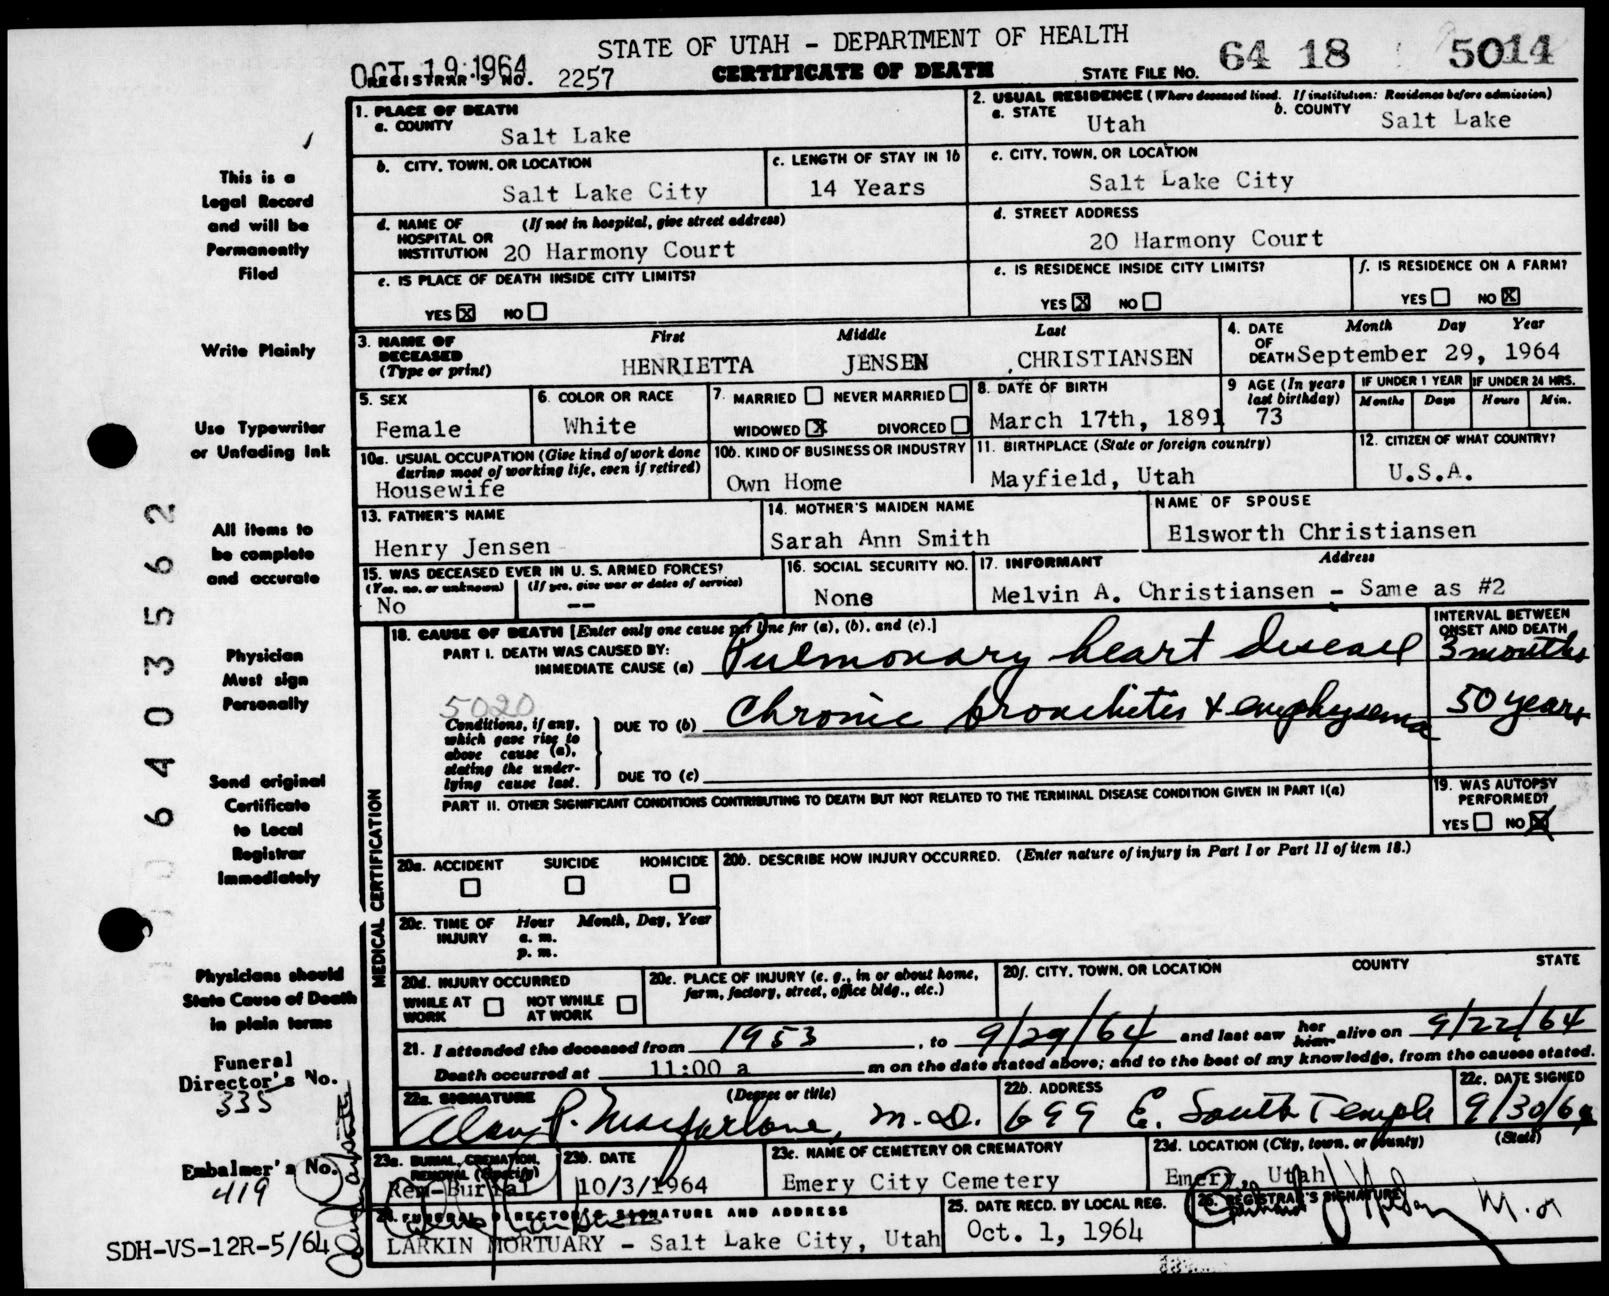 STATE OF UTAH - DEPARTMENT OF HEALTH
OCT 19 1964
REGISTRAR'S NO. 2257
CERTIFICATE OF DEATH
STATE FILE NO. 64 18 5014
1. PLACE OF DEATH
a. COUNTY Salt Lake
2. USUAL RESIDENCE (Where deceased lived. If institution: Residence before admission)
a. STATE Utah b. COUNTY Salt Lake
b. CITY, TOWN, OR LOCATION Salt Lake City
c. LENGTH OF STAY IN 1b 14 Years
c. CITY, TOWN, OR LOCATION Salt Lake City
d. NAME OF HOSPITAL OR INSTITUTION (If not in hospital, give street address) 20 Harmony Court
d. STREET ADDRESS 20 Harmony Court
e. IS PLACE OF DEATH INSIDE CITY LIMITS?
YES X NO
e. IS RESIDENCE INSIDE CITY LIMITS?
YES X NO
f. IS RESIDENCE ON A FARM?
YES NO X
3. NAME OF DECEASED (Type or print)
First Middle Last
HENRIETTA JENSEN CHRISTIANSEN
4. DATE OF DEATH Month Day Year
September 29, 1964
5. SEX Female
6. COLOR OR RACE White
7. MARRIED NEVER MARRIED
WIDOWED X DIVORCED
8. DATE OF BIRTH March 17th, 1891
9 AGE (In years last birthday) 73
IF UNDER 1 YEAR Months Days
IF UNDER 24 HRS. Hours Min.
10a. USUAL OCCUPATION (Give kind of work done during most of working life, even if retired)
Housewife
10b. KIND OF BUSINESS OR INDUSTRY
Own Home
11. BIRTHPLACE (State or foreign country)
Mayfield, Utah
12. CITIZEN OF WHAT COUNTRY?
U.S.A.
13. FATHER'S NAME
Henry Jensen
14. MOTHER'S MAIDEN NAME
Sarah Ann Smith
NAME OF SPOUSE
Elsworth Christiansen
15. WAS DECEASED EVER IN U. S. ARMED FORCES?
(Yes, no, or unknown) (If yes, give war or dates of service)
No --
16. SOCIAL SECURITY NO.
None
17. INFORMANT Address
Melvin A. Christiansen - Same as #2
MEDICAL CERTIFICATION
18. CAUSE OF DEATH [Enter only one cause per line for (a), (b), and (c).]
INTERVAL BETWEEN ONSET AND DEATH
PART I. DEATH WAS CAUSED BY:
IMMEDIATE CAUSE (a) Pulmonary heart disease 3 months
5020
Conditions, if any, which gave rise to above cause (a), stating the underlying cause last.
DUE TO (b) Chronic bronchitis & emphysema 50 years
DUE TO (c)
PART II. OTHER SIGNIFICANT CONDITIONS CONTRIBUTING TO DEATH BUT NOT RELATED TO THE TERMINAL DISEASE CONDITION GIVEN IN PART I(a)
19. WAS AUTOPSY PERFORMED?
YES NO X
20a. ACCIDENT SUICIDE HOMICIDE
20b. DESCRIBE HOW INJURY OCCURRED. (Enter nature of injury in Part I or Part II of item 18.)
20c. TIME OF INJURY Hour Month, Day, Year
a. m.
p. m.
20d. INJURY OCCURRED
WHILE AT WORK NOT WHILE AT WORK
20e. PLACE OF INJURY (e. g., in or about home, farm, factory, street, office bldg., etc.)
20f. CITY, TOWN, OR LOCATION COUNTY STATE
21. I attended the deceased from 1953, to 9/29/64 and last saw her him alive on 9/22/64
Death occurred at 11:00 a m on the date stated above; and to the best of my knowledge, from the causes stated.
22a. SIGNATURE (Degree or title)
Alan P. Macfarlane, M.D.
22b. ADDRESS
699 E. South Temple
22c. DATE SIGNED
9/30/64
23a. BURIAL, CREMATION, REMOVAL (Specify)
Rem-Burial
23b. DATE
10/3/1964
23c. NAME OF CEMETERY OR CREMATORY
Emery City Cemetery
23d. LOCATION (City, town, or county) (State)
Emery, Utah
24. FUNERAL DIRECTOR'S SIGNATURE AND ADDRESS
LARKIN MORTUARY - Salt Lake City, Utah
25. DATE RECD. BY LOCAL REG.
Oct. 1, 1964
26. REGISTRAR'S SIGNATURE
This is a
Legal Record
and will be
Permanently
Filed
Write Plainly
Use Typewriter
or Unfading Ink
All items to
be complete
and accurate
Physician
Must sign
Personally
Send original
Certificate
to Local
Registrar
Immediately
Physicians should
State Cause of Death
in plain terms
Funeral
Director's No.
335
Embalmer's No.
419
SDH-VS-12R-5/64
064035562